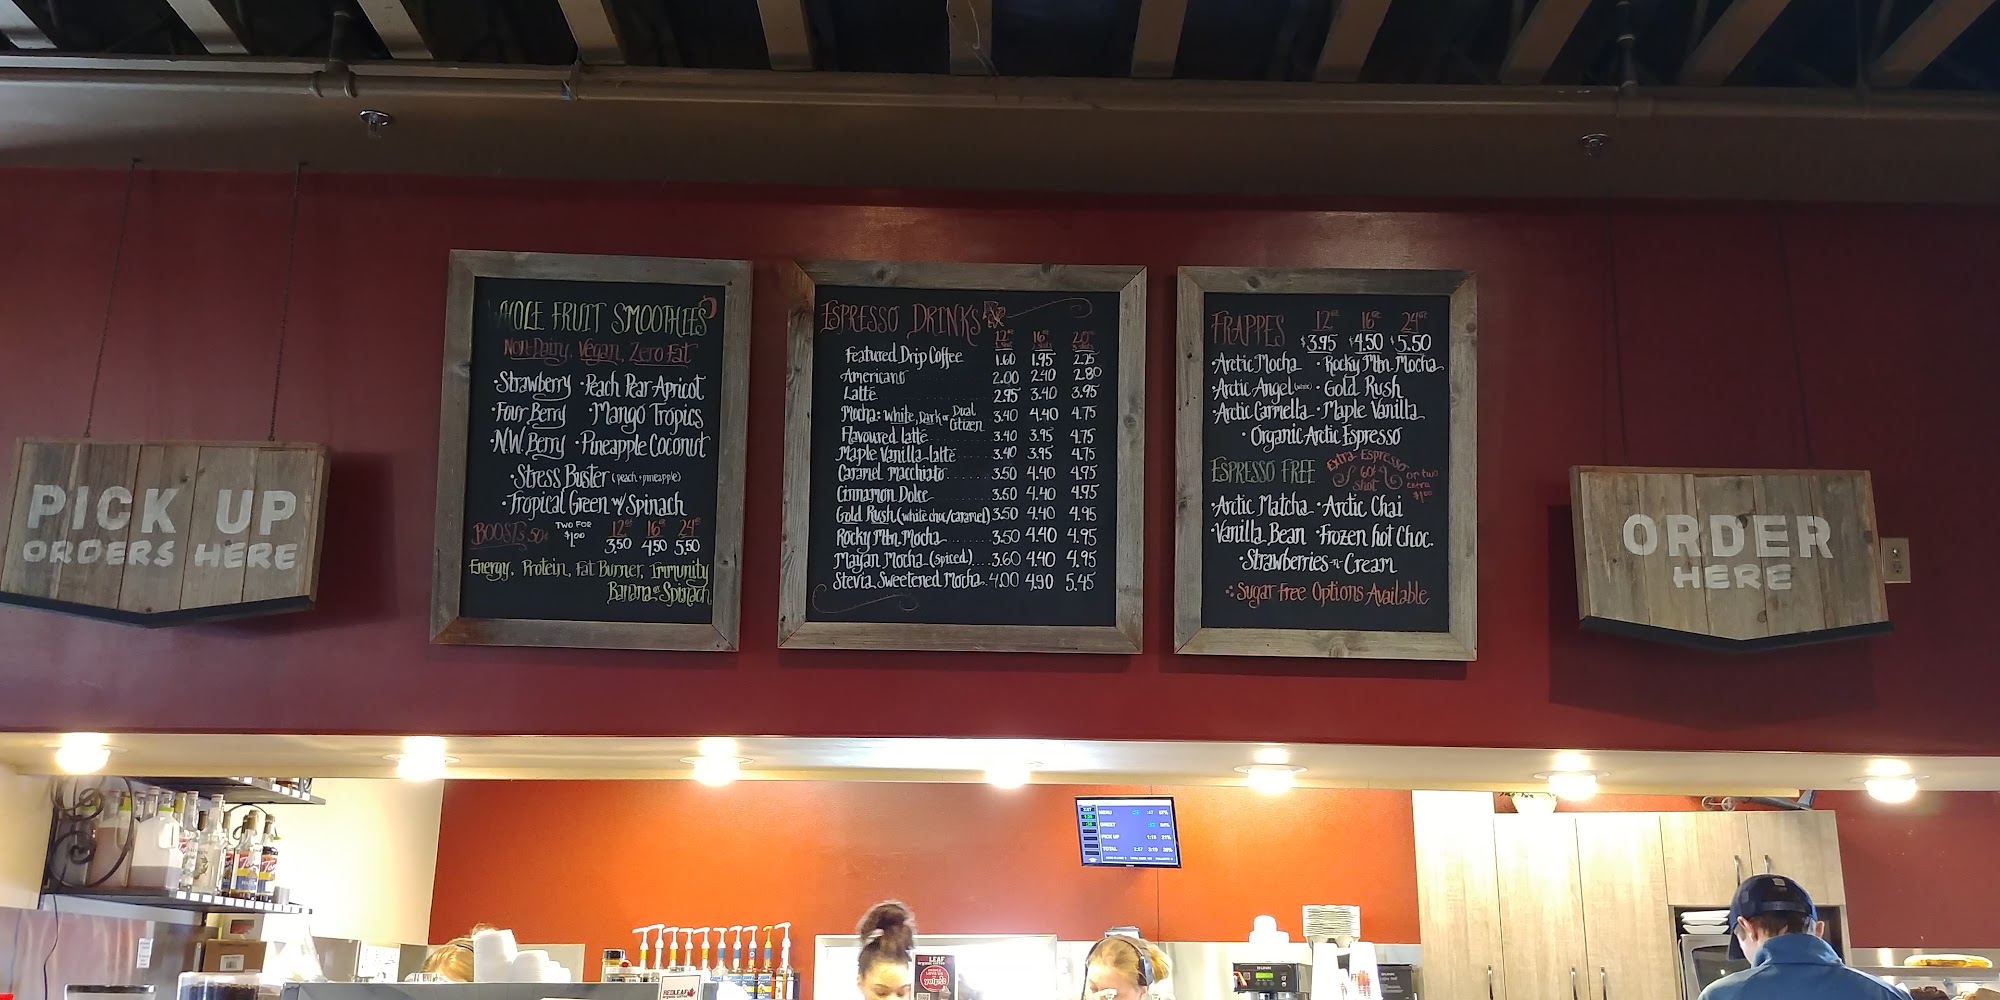 PICK UP
ORDERS HERE
WHOLE FRUIT SMOOTHIES
Non-Dairy, Vegan, Zero Fat
·Strawberry ·Peach Pear Apricot
·Four Berry ·Mango Tropics
·N.W. Berry ·Pineapple Coconut
·Stress Buster (peach + pineapple)
·Tropical Green w/ Spinach
BOOSTS 50¢ TWO FOR $1.00
12oz 16oz 24oz
3.50 4.50 5.50
Energy, Protein, Fat Burner, Immunity
Banana or Spinach
ESPRESSO DRINKS
12oz 16oz 20oz
Featured Drip Coffee 1.60 1.95 2.25
Americano 2.00 2.40 2.80
Latté 2.95 3.40 3.95
Mocha: White, Dark or Dual Citizen 3.40 4.40 4.75
Flavoured latté 3.40 3.95 4.75
Maple Vanilla latté 3.40 3.95 4.75
Caramel Macchiato 3.50 4.40 4.95
Cinnamon Dolce 3.50 4.40 4.95
Gold Rush (white choc/caramel) 3.50 4.40 4.95
Rocky Mtn. Mocha 3.50 4.40 4.95
Mayan Mocha (spiced) 3.60 4.40 4.95
Stevia Sweetened Mocha 4.00 4.90 5.45
FRAPPES 12oz 16oz 24oz
$3.95 $4.50 $5.50
·Arctic Mocha ·Rocky Mtn. Mocha
·Arctic Angel (white) ·Gold Rush
·Arctic Carmella ·Maple Vanilla
·Organic Arctic Espresso
ESPRESSO FREE
Extra Espresso Shot 60¢
or two extra $1.00
·Arctic Matcha ·Arctic Chai
·Vanilla Bean ·Frozen hot Choc.
·Strawberries -n- Cream
Sugar Free Options Available
ORDER
HERE
MENU
GREET
PICK UP
TOTAL
REDLEAF
LEAF
yelp